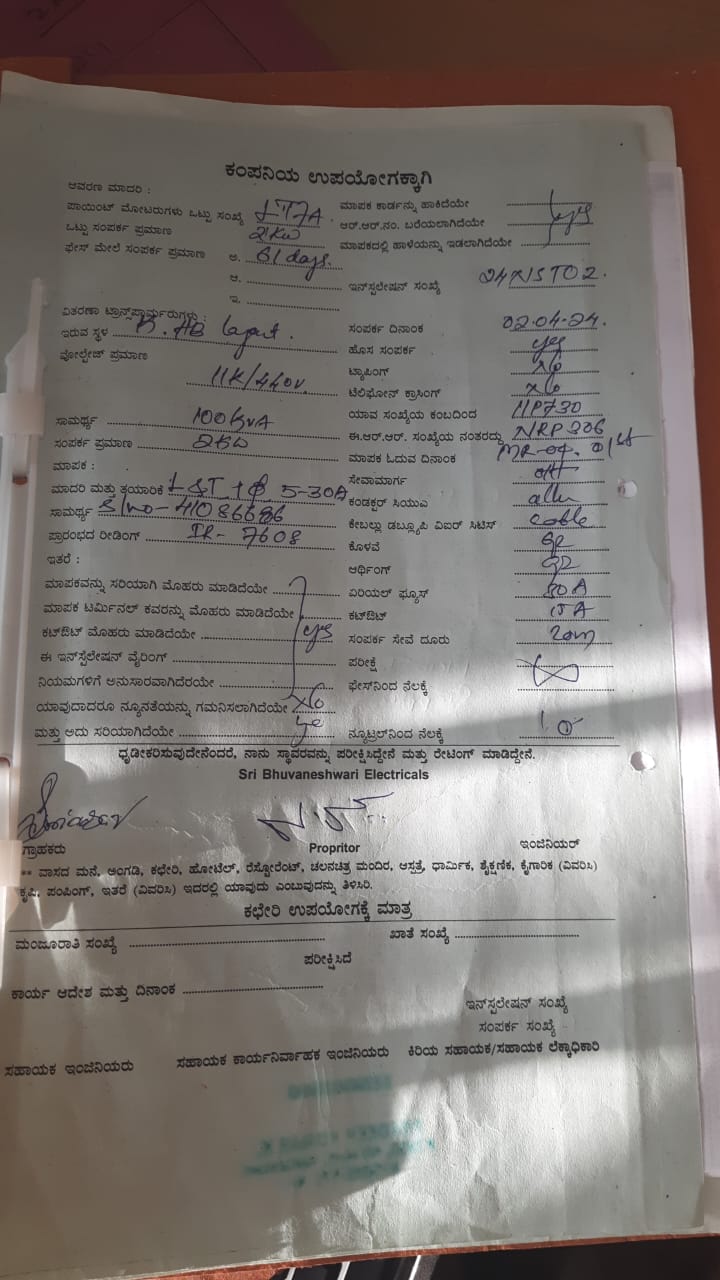 ಕಂಪನಿಯ ಉಪಯೋಗಕ್ಕಾಗಿ
ಆವರಣ ಮಾದರಿ :
ಪಾಯಿಂಟ್ ಮೋಟರುಗಳು ಒಟ್ಟು ಸಂಖ್ಯೆ
ಒಟ್ಟು ಸಂಪರ್ಕ ಪ್ರಮಾಣ 2kw
ಫೇಸ್ ಮೇಲೆ ಸಂಪರ್ಕ ಪ್ರಮಾಣ ಅ. 61 days.
ಆ.
ಇ.
ವಿತರಣಾ ಟ್ರಾನ್ಸ್‌ಫಾರ್ಮರುಗಳು :
ಇರುವ ಸ್ಥಳ
ವೋಲ್ಟೇಜ್ ಪ್ರಮಾಣ
11K/440v.
ಸಾಮರ್ಥ್ಯ 100kvA
ಸಂಪರ್ಕ ಪ್ರಮಾಣ 2KW
ಮಾಪಕ :
ಮಾದರಿ ಮತ್ತು ತಯಾರಿಕೆ L&T 1Φ 5-30A
ಸಾಮರ್ಥ್ಯ S/no-
ಪ್ರಾರಂಭದ ರೀಡಿಂಗ್ IR- 7608
ಇತರೆ :
ಮಾಪಕವನ್ನು ಸರಿಯಾಗಿ ಮೊಹರು ಮಾಡಿದೆಯೇ
ಮಾಪಕ ಟರ್ಮಿನಲ್ ಕವರನ್ನು ಮೊಹರು ಮಾಡಿದೆಯೇ
ಕಟ್‌ಔಟ್ ಮೊಹರು ಮಾಡಿದೆಯೇ yes
ಈ ಇನ್‌ಸ್ಟೆಲೇಷನ್ ವೈರಿಂಗ್
ನಿಯಮಗಳಿಗೆ ಅನುಸಾರವಾಗಿದೆರಯೇ
ಯಾವುದಾದರೂ ನ್ಯೂನತೆಯನ್ನು ಗಮನಿಸಲಾಗಿದೆಯೇ No
ಮತ್ತು ಅದು ಸರಿಯಾಗಿದೆಯೇ
ಮಾಪಕ ಕಾರ್ಡನ್ನು ಹಾಕಿದೆಯೇ
ಆರ್.ಆರ್.ನಂ. ಬರೆಯಲಾಗಿದೆಯೇ yes
ಮಾಪಕದಲ್ಲಿ ಹಾಳೆಯನ್ನು ಇಡಲಾಗಿದೆಯೇ
ಇನ್‌ಸ್ಟಲೇಷನ್ ಸಂಖ್ಯೆ
ಸಂಪರ್ಕ ದಿನಾಂಕ 02.04.24.
ಹೊಸ ಸಂಪರ್ಕ yes
ಟ್ಯಾಪಿಂಗ್ No
ಟೆಲಿಫೋನ್ ಕ್ರಾಸಿಂಗ್ No
ಯಾವ ಸಂಖ್ಯೆಯ ಕಂಬದಿಂದ
ಈ.ಆರ್.ಆರ್. ಸಂಖ್ಯೆಯ ನಂತರದ್ದು NRP306
ಮಾಪಕ ಓದುವ ದಿನಾಂಕ
ಸೇವಾಮಾರ್ಗ
ಕಂಡಕ್ಟರ್ ಸಿಯುಎ
ಕೇಬಲ್ಲು ಡಬ್ಲ್ಯೂಪಿ ವಿಐರ್ ಸಿಟಿಸ್ cable
ಕೊಳವೆ
ಆರ್ಥಿಂಗ್
ಏರಿಯಲ್ ಫ್ಯೂಸ್
ಕಟ್‌ಔಟ್ 15A
ಸಂಪರ್ಕ ಸೇವೆ ದೂರು 20m
ಪರೀಕ್ಷೆ
ಫೇಸ್‌ನಿಂದ ನೆಲಕ್ಕೆ
ನ್ಯೂಟ್ರಲ್‌ನಿಂದ ನೆಲಕ್ಕೆ
ಧೃಡೀಕರಿಸುವುದೇನೆಂದರೆ, ನಾನು ಸ್ಥಾವರವನ್ನು ಪರೀಕ್ಷಿಸಿದ್ದೇನೆ ಮತ್ತು ರೇಟಿಂಗ್ ಮಾಡಿದ್ದೇನೆ.
Sri Bhuvaneshwari Electricals
ಗ್ರಾಹಕರು Propritor ಇಂಜಿನಿಯರ್
** ವಾಸದ ಮನೆ, ಅಂಗಡಿ, ಕಛೇರಿ, ಹೋಟೆಲ್, ರೆಸ್ಟೋರೆಂಟ್, ಚಲನಚಿತ್ರ ಮಂದಿರ, ಆಸ್ಪತ್ರೆ, ಧಾರ್ಮಿಕ, ಶೈಕ್ಷಣಿಕ, ಕೈಗಾರಿಕ (ವಿವರಿಸಿ)
ಕೃಷಿ, ಪಂಪಿಂಗ್, ಇತರೆ (ವಿವರಿಸಿ) ಇದರಲ್ಲಿ ಯಾವುದು ಎಂಬುವುದನ್ನು ತಿಳಿಸಿರಿ.
ಕಛೇರಿ ಉಪಯೋಗಕ್ಕೆ ಮಾತ್ರ
ಮಂಜೂರಾತಿ ಸಂಖ್ಯೆ ಖಾತೆ ಸಂಖ್ಯೆ
ಪರೀಕ್ಷಿಸಿದೆ
ಕಾರ್ಯ ಆದೇಶ ಮತ್ತು ದಿನಾಂಕ
ಇನ್‌ಸ್ಟಲೇಷನ್ ಸಂಖ್ಯೆ
ಸಂಪರ್ಕ ಸಂಖ್ಯೆ
ಸಹಾಯಕ ಇಂಜಿನಿಯರು ಸಹಾಯಕ ಕಾರ್ಯನಿರ್ವಾಹಕ ಇಂಜಿನಿಯರು ಕಿರಿಯ ಸಹಾಯಕ/ಸಹಾಯಕ ಲೆಕ್ಕಾಧಿಕಾರಿ